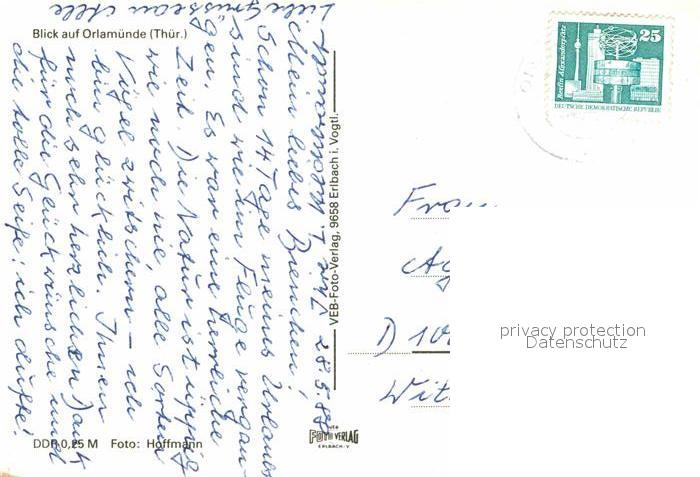 Blick auf Orlamünde (Thür.)
25
Berlin-Alexanderplatz
DEUTSCHE DEMOKRATISCHE REPUBLIK
28.5.88
Mein liebes Bienchen!
Schon 14 Tage meines Urlaubs
sind wie im Fluge vergan-
gen. Es war eine herrliche
Zeit. Die Natur ist üppig
wie noch nie, alle Sorten
Vögel zwitschern – ich
bin glücklich. Ihnen
noch sehr herzlichen Dank
für die Glückwünsche und
die tolle Seife: ich dufte!
Liebe Grüsse an alle
VEB-Foto-Verlag, 9658 Erlbach i. Vogtl.
Frau
D 10
Wit
privacy protection
Datenschutz
DDR 0,25 M Foto: Hoffmann
FOTO VERLAG
ERLBACH-V